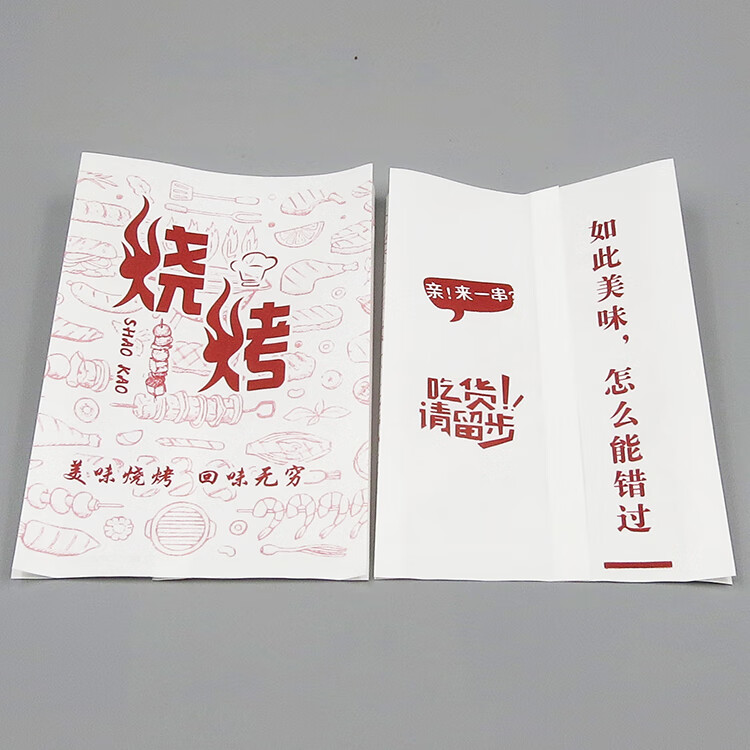 烧烤
SHAO KAO
美味烧烤 回味无穷
亲!来一串?
吃货!!
请留步
如此美味,怎么能错过